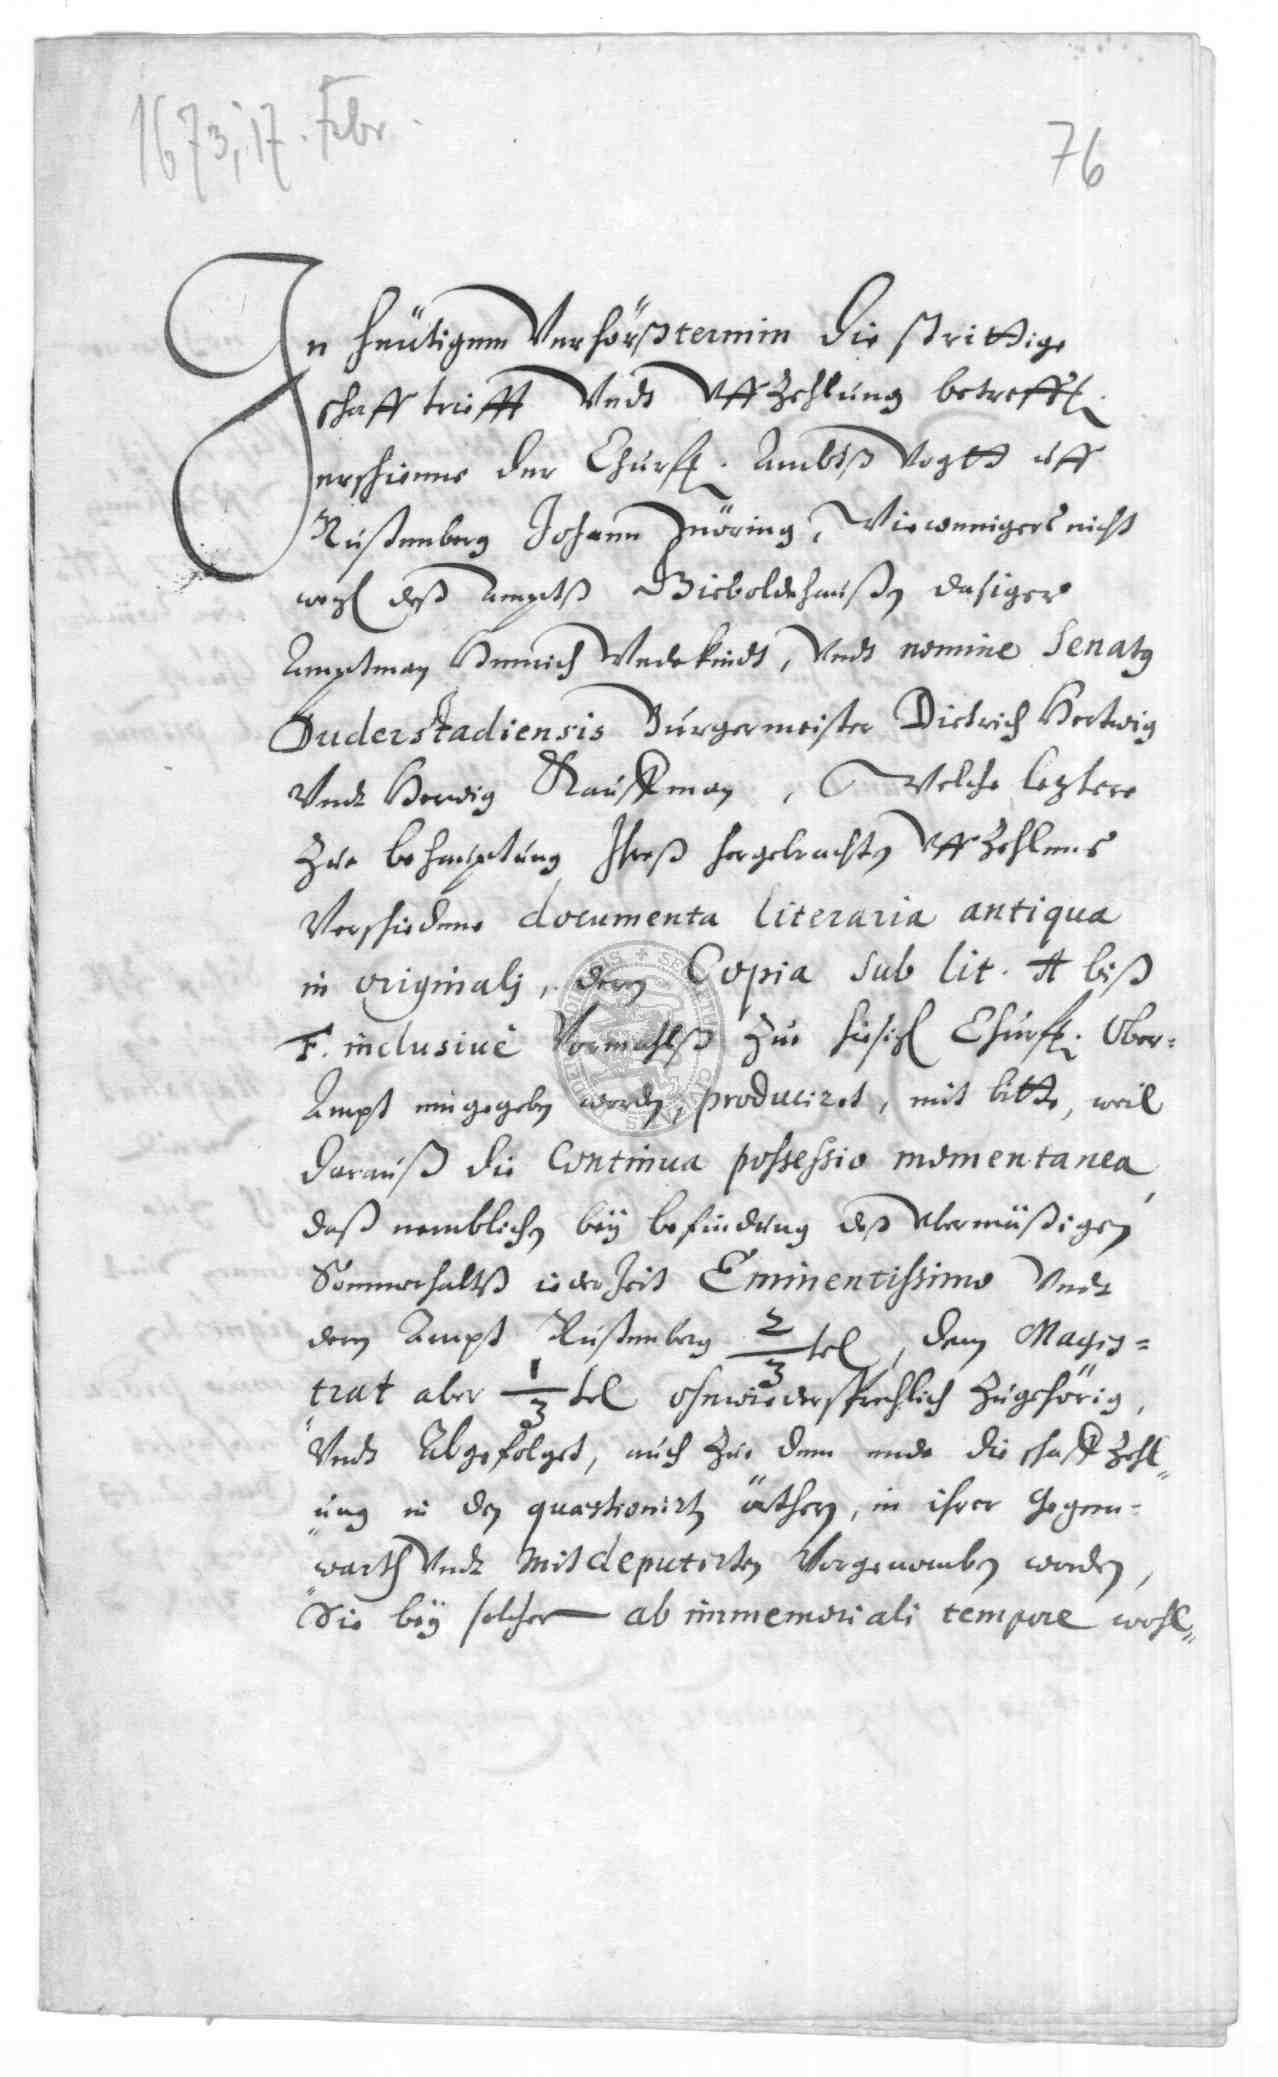 1673, 17. Febr.
76
In heütigem Verhörßtermin die strittige
schaff trifft Vndt Vffzehlung betreff.
erschienne der Churf. Ambts Vogtt uff
Rustenberg Johann Zwöring, Vieweniger nicht
weg. deß Ampts Gieboldehaußen dasiger
Amptman Henrich Wedekindt, Vndt nomine Senatus
Duderstadiensis Bürgermeister Dietrich Hertwig
Vndt Herwig Kauffman, Welche leztere
Zue behauptung Ihreß hergebrachten Vffzehlens
Verschiedene documenta literaria antiqua
in originali, deren Copia sub lit. A biß
F. inclusive Vormahlß Zue hiesig. Churf. Ober=
Ampt eingegeben worden, produciret, mit bitte, weil
darauß die Continua possessio momentanea,
daß nemblichen beÿ befindung deß Vbermäßigen
Sommerhaltß iederZeit Eminentissimo Vndt
dem Ampt Rustenberg 2/3 tel, dem Magis=
trat aber 1/3 tel ohnwiedersprechlich Zugehörig,
Vndt Abgefolget, auch Zue dem ende die schaffZehl=
ung in den quaestionirten örthern, in ihrer Gegen=
warth Vndt Mitdeputirten Vorgenomben worden,
Sie beÿ solcher ab immemoriali tempore wohl=